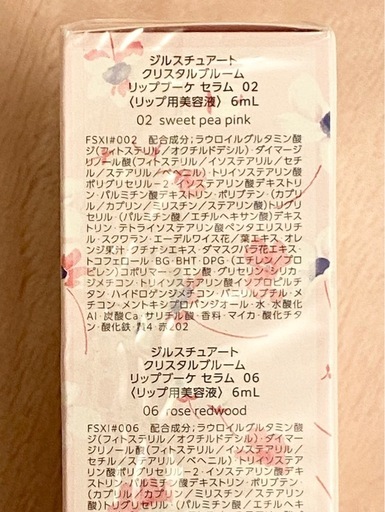 ジルスチュアート
クリスタルブルーム
リップブーケ セラム 02
〈リップ用美容液〉 6mL
02 sweet pea pink
FSXI#002 配合成分；ラウロイルグルタミン酸
ジ(フィトステリル／オクチルドデシル)・ダイマージ
リノール酸(フィトステリル／イソステアリル／セチ
ル／ステアリル／ベヘニル)・トリイソステアリン酸
ポリグリセリル-2・イソステアリン酸デキストリ
ン・パルミチン酸デキストリン・ポリブテン・(カプリ
ル／カプリン／ミリスチン／ステアリン酸)トリグリ
セリル・(パルミチン酸／エチルヘキサン酸)デキス
トリン・テトライソステアリン酸ペンタエリスリチ
ル・スクワラン・エーデルワイス花／葉エキス・オレ
ンジ果汁・クチナシエキス・ダマスクバラ花エキス・
トコフェロール・BG・BHT・DPG・(エチレン／プロ
ピレン)コポリマー・クエン酸・グリセリン・シリカ・
ジメチコン・トリイソステアリン酸イソプロピルチ
タン・ハイドロゲンジメチコン・バニリルブチル・メ
チコン・メントキシプロパンジオール・水・水酸化
Al・炭酸Ca・サリチル酸・香料・マイカ・酸化チタ
ン・酸化鉄・黄4・赤202
ジルスチュアート
クリスタルブルーム
リップブーケ セラム 06
〈リップ用美容液〉 6mL
06 rose redwood
FSXI#006 配合成分；ラウロイルグルタミン酸
ジ(フィトステリル／オクチルドデシル)・ダイマー
ジリノール酸(フィトステリル／イソステアリル／
セチル／ステアリル／ベヘニル)・トリイソステア
リン酸ポリグリセリル-2・イソステアリン酸デキ
ストリン・パルミチン酸デキストリン・ポリブテン・
(カプリル／カプリン／ミリスチン／ステアリン
酸)トリグリセリル・(パルミチン酸／エチルヘキ